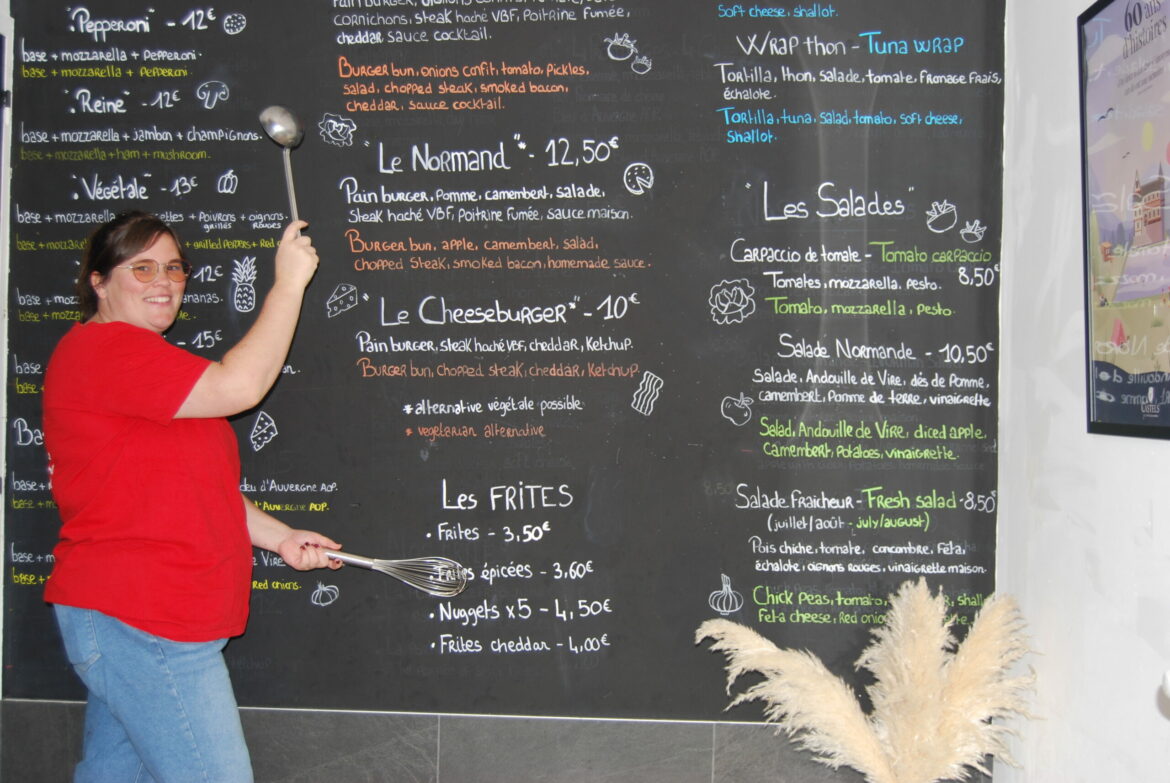 "Pepperoni" - 12€
base + mozzarella + Pepperoni.
base + mozzarella + Pepperoni.
"Reine" - 12€
base + mozzarella + jambon + champignons.
base + mozzarella + ham + mushroom.
"Végétale" - 13€
base + mozzarella + Poivrons + oignons
grillés rouges
base + mozzare + grilled Peppers + Red
12€
base + mo ananas.
base + mo
- 15€
base
base
Ba
base + deu d'Auvergne AOP.
base + d'Auvergne AOP.
base + m e Vire
base + Red onions.
Pain burger,
cornichons, steak haché VBF, Poitrine Fumée,
cheddar, sauce cocktail.
Burger bun, onions confit, tomato, Pickles,
salad, chopped steak, smoked bacon,
cheddar, sauce cocktail.
"Le Normand"* - 12,50€
Pain burger, Pomme, camembert, salade,
Steak haché VBF, Poitrine Fumée, sauce maison.
Burger bun, apple, camembert, salad,
chopped steak, smoked bacon, homemade sauce.
"Le Cheeseburger*" - 10€
Pain burger, steak haché VBF, cheddar, Ketchup.
Burger bun, chopped steak, cheddar, Ketchup.
* alternative végétale possible
* vegetarian alternative
Les FRITES
• Frites - 3,50€
• Frites épicées - 3,60€
• Nuggets x5 - 4,50€
• Frites cheddar - 4,00€
Soft cheese, shallot.
Wrap thon - Tuna wrap
Tortilla, thon, salade, tomate, fromage frais,
échalote.
Tortilla, tuna, salad, tomato, soft cheese,
shallot.
"Les Salades"
Carpaccio de tomate - Tomato carpaccio
8,50€
Tomates, mozzarella, pesto.
Tomato, mozzarella, pesto.
Salade Normande - 10,50€
Salade, Andouille de Vire, dés de Pomme,
camembert, Pomme de terre, vinaigrette.
Salad, Andouille de Vire, diced apple,
Camembert, Potatoes, vinaigrette.
Salade fraicheur - Fresh salad - 8,50€
(juillet/août - july/august)
Pois chiche, tomate, concombre, Feta,
échalote, oignons rouges, vinaigrette maison.
Chick Peas, tomato, shall
Feta cheese, Red onio ette.
60 ans
d'histoires